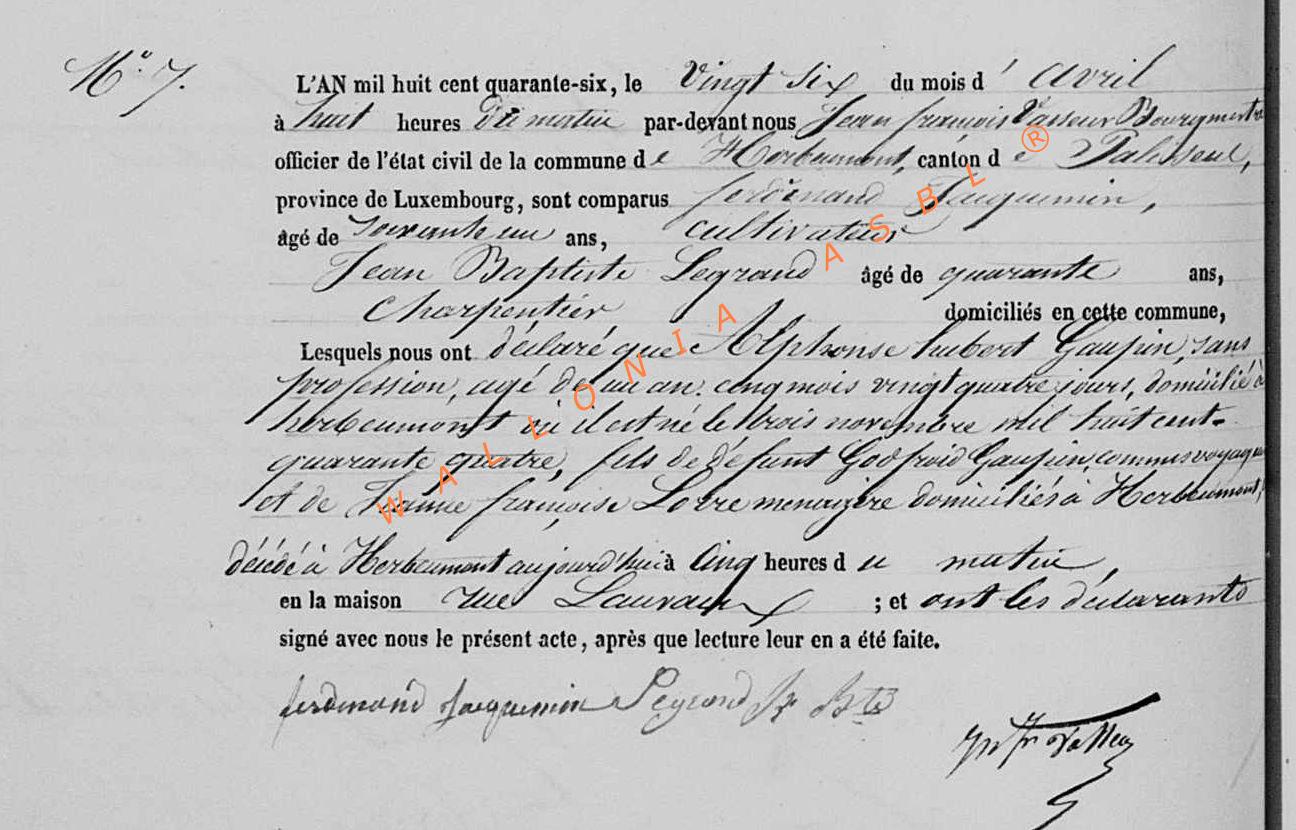 N° 7.
L'AN mil huit cent quarante-six, le vingt six du mois d' avril
à huit heures du matin par-devant nous Jean françois Vasseur Bourgmestre
officier de l'état civil de la commune de Herbeumont, canton de Paliseul,
province de Luxembourg, sont comparus ferdinand Jacquemin,
âgé de soixante un ans, cultivateur
Jean Baptiste Legrand âgé de quarante ans,
charpentier domiciliés en cette commune,
Lesquels nous ont déclaré que Alphonse hubert Gaupin, sans
profession, agé de un an cinq mois vingt quatre jours, domicilié à
herbeumont où il est né le trois novembre mil huit cent
quarante quatre, fils de défunt Godfroid Gaupin, commis voyageur
et de Jeanne françoise menagère domiciliés à Herbeumont,
décédé à Herbeumont aujourd'hui à cinq heures du matin,
en la maison rue ; et ont les déclarants
signé avec nous le présent acte, après que lecture leur en a été faite.
ferdinand Jacquemin Legrand Jn Bte
WALLONIA ASBL ®